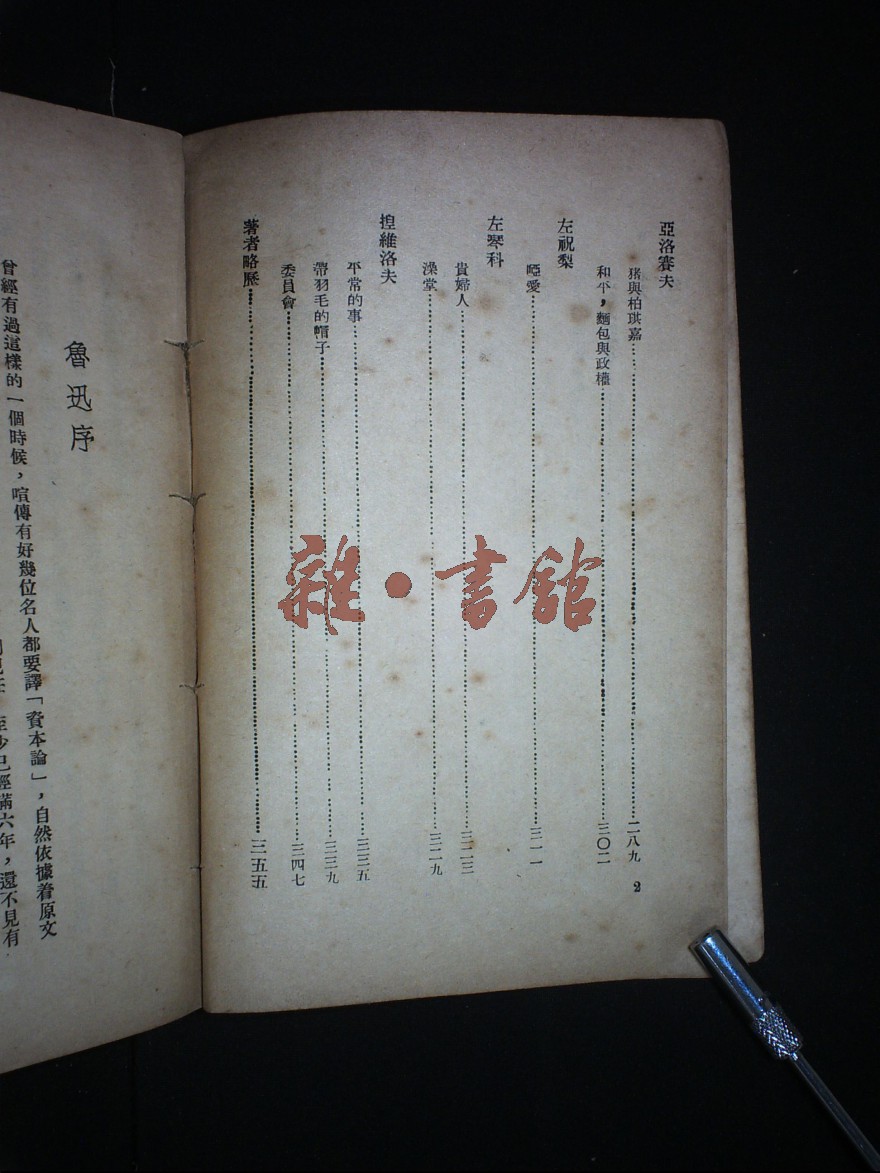 亞洛賽夫
猪與柏琪嘉……二八九
和平，麵包與政權……三〇二
左祝梨
啞愛……三一一
左琴科
貴婦人……三二三
澡堂……三二九
捏維洛夫
平常的事……三三五
帶羽毛的帽子……三三九
委員會……三四七
著者略歷……三五五
2
魯迅序
曾經有過這樣的一個時候，喧傳有好幾位名人都要譯「資本論」，自然依據着原文
至少已經滿六年，還不見有
雜·書館